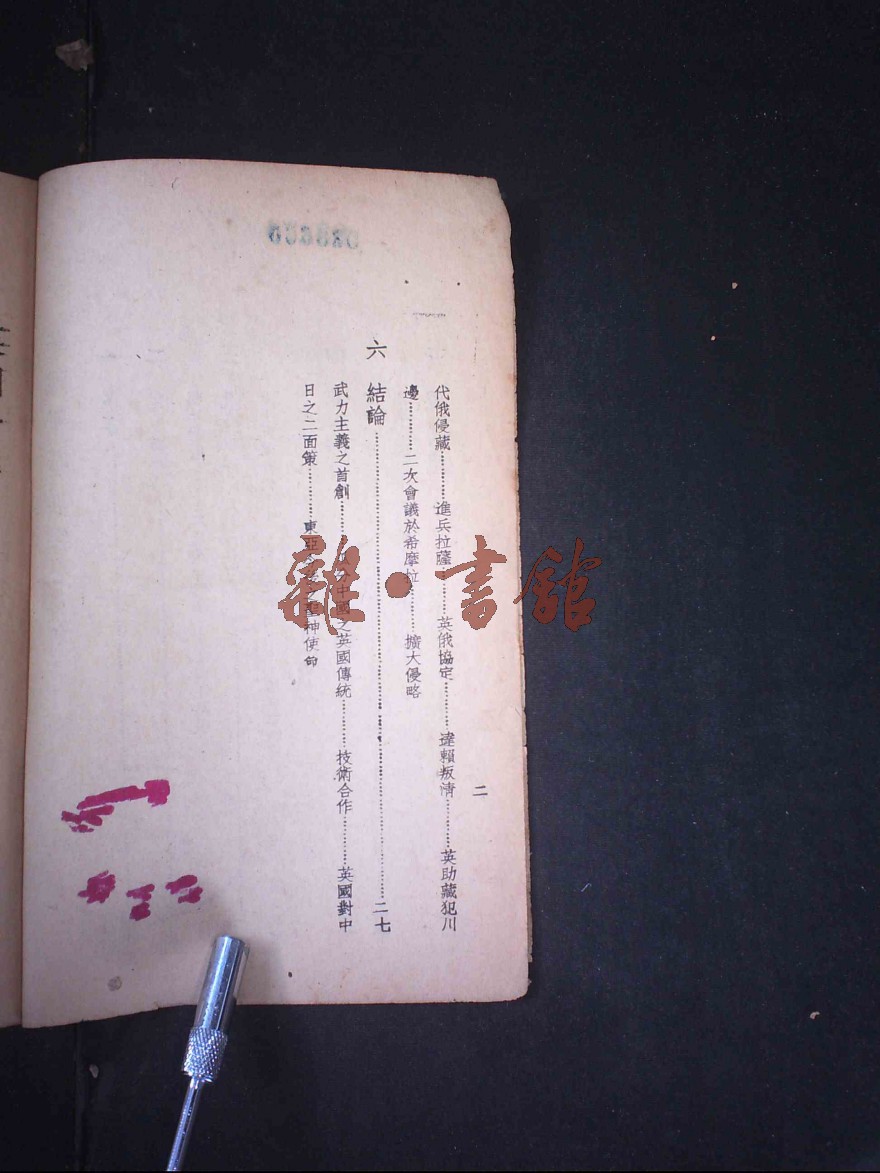 二
代俄侵藏…………進兵拉薩…………英俄協定…………達賴叛清…………英助藏犯川
邊…………二次會議於希摩拉…………擴大侵略
六 結論…………二七
武力主義之首創…………中國之英國傳統…………技術合作…………英國對中
日之二面策…………東亞 聖神使命
雜·書館